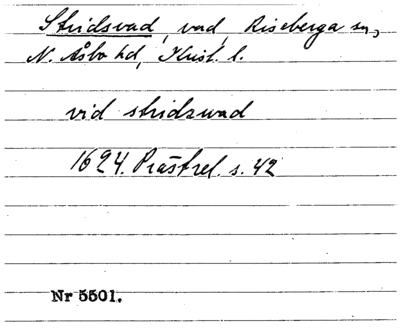 Stridsvad, vad, Riseberga sn,
N. Åsbo hd, Krist. l.
vid stridzwad
1624. Prästrel. s. 42
Nr 5501.